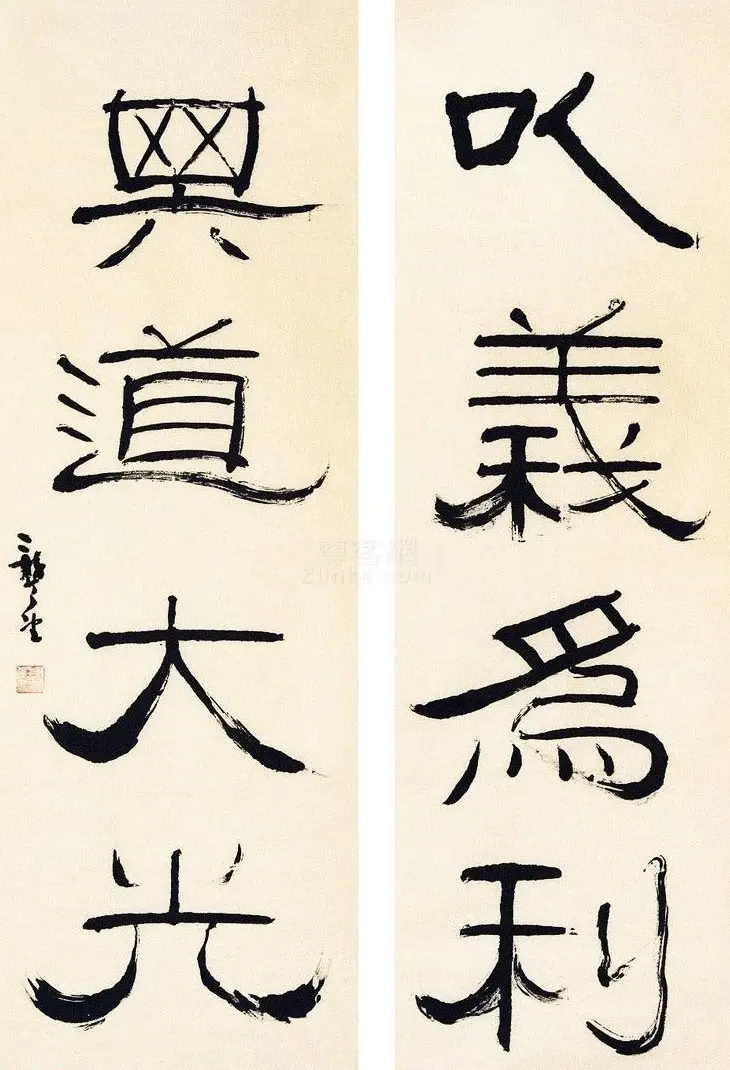 㕥義爲利
其道大光
龔望
尊客網
Zunke.com